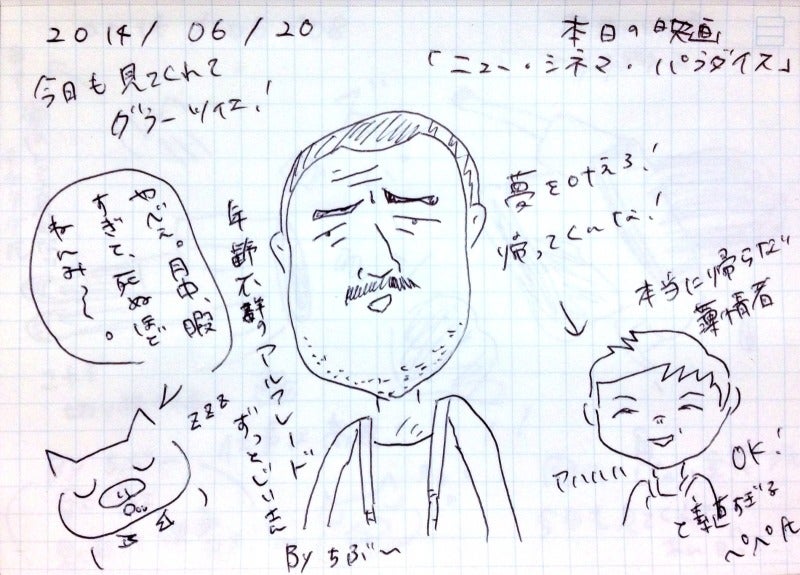 2014/06/20
本日の映画
「ニュー・シネマ・パラダイス」
今日も見てくれて
グラーツィエ!
夢を叶えろ!
帰ってくんな!
本当に帰らない
薄情者
やべぇ。日中、暇
すぎて、死ぬほど
ねんみ〜。
zzz
年齢不詳のアルフレード
ずっとじいさん
アハハハハ
OK!
と素直すぎる
ペペペ代
By ちぶ〜